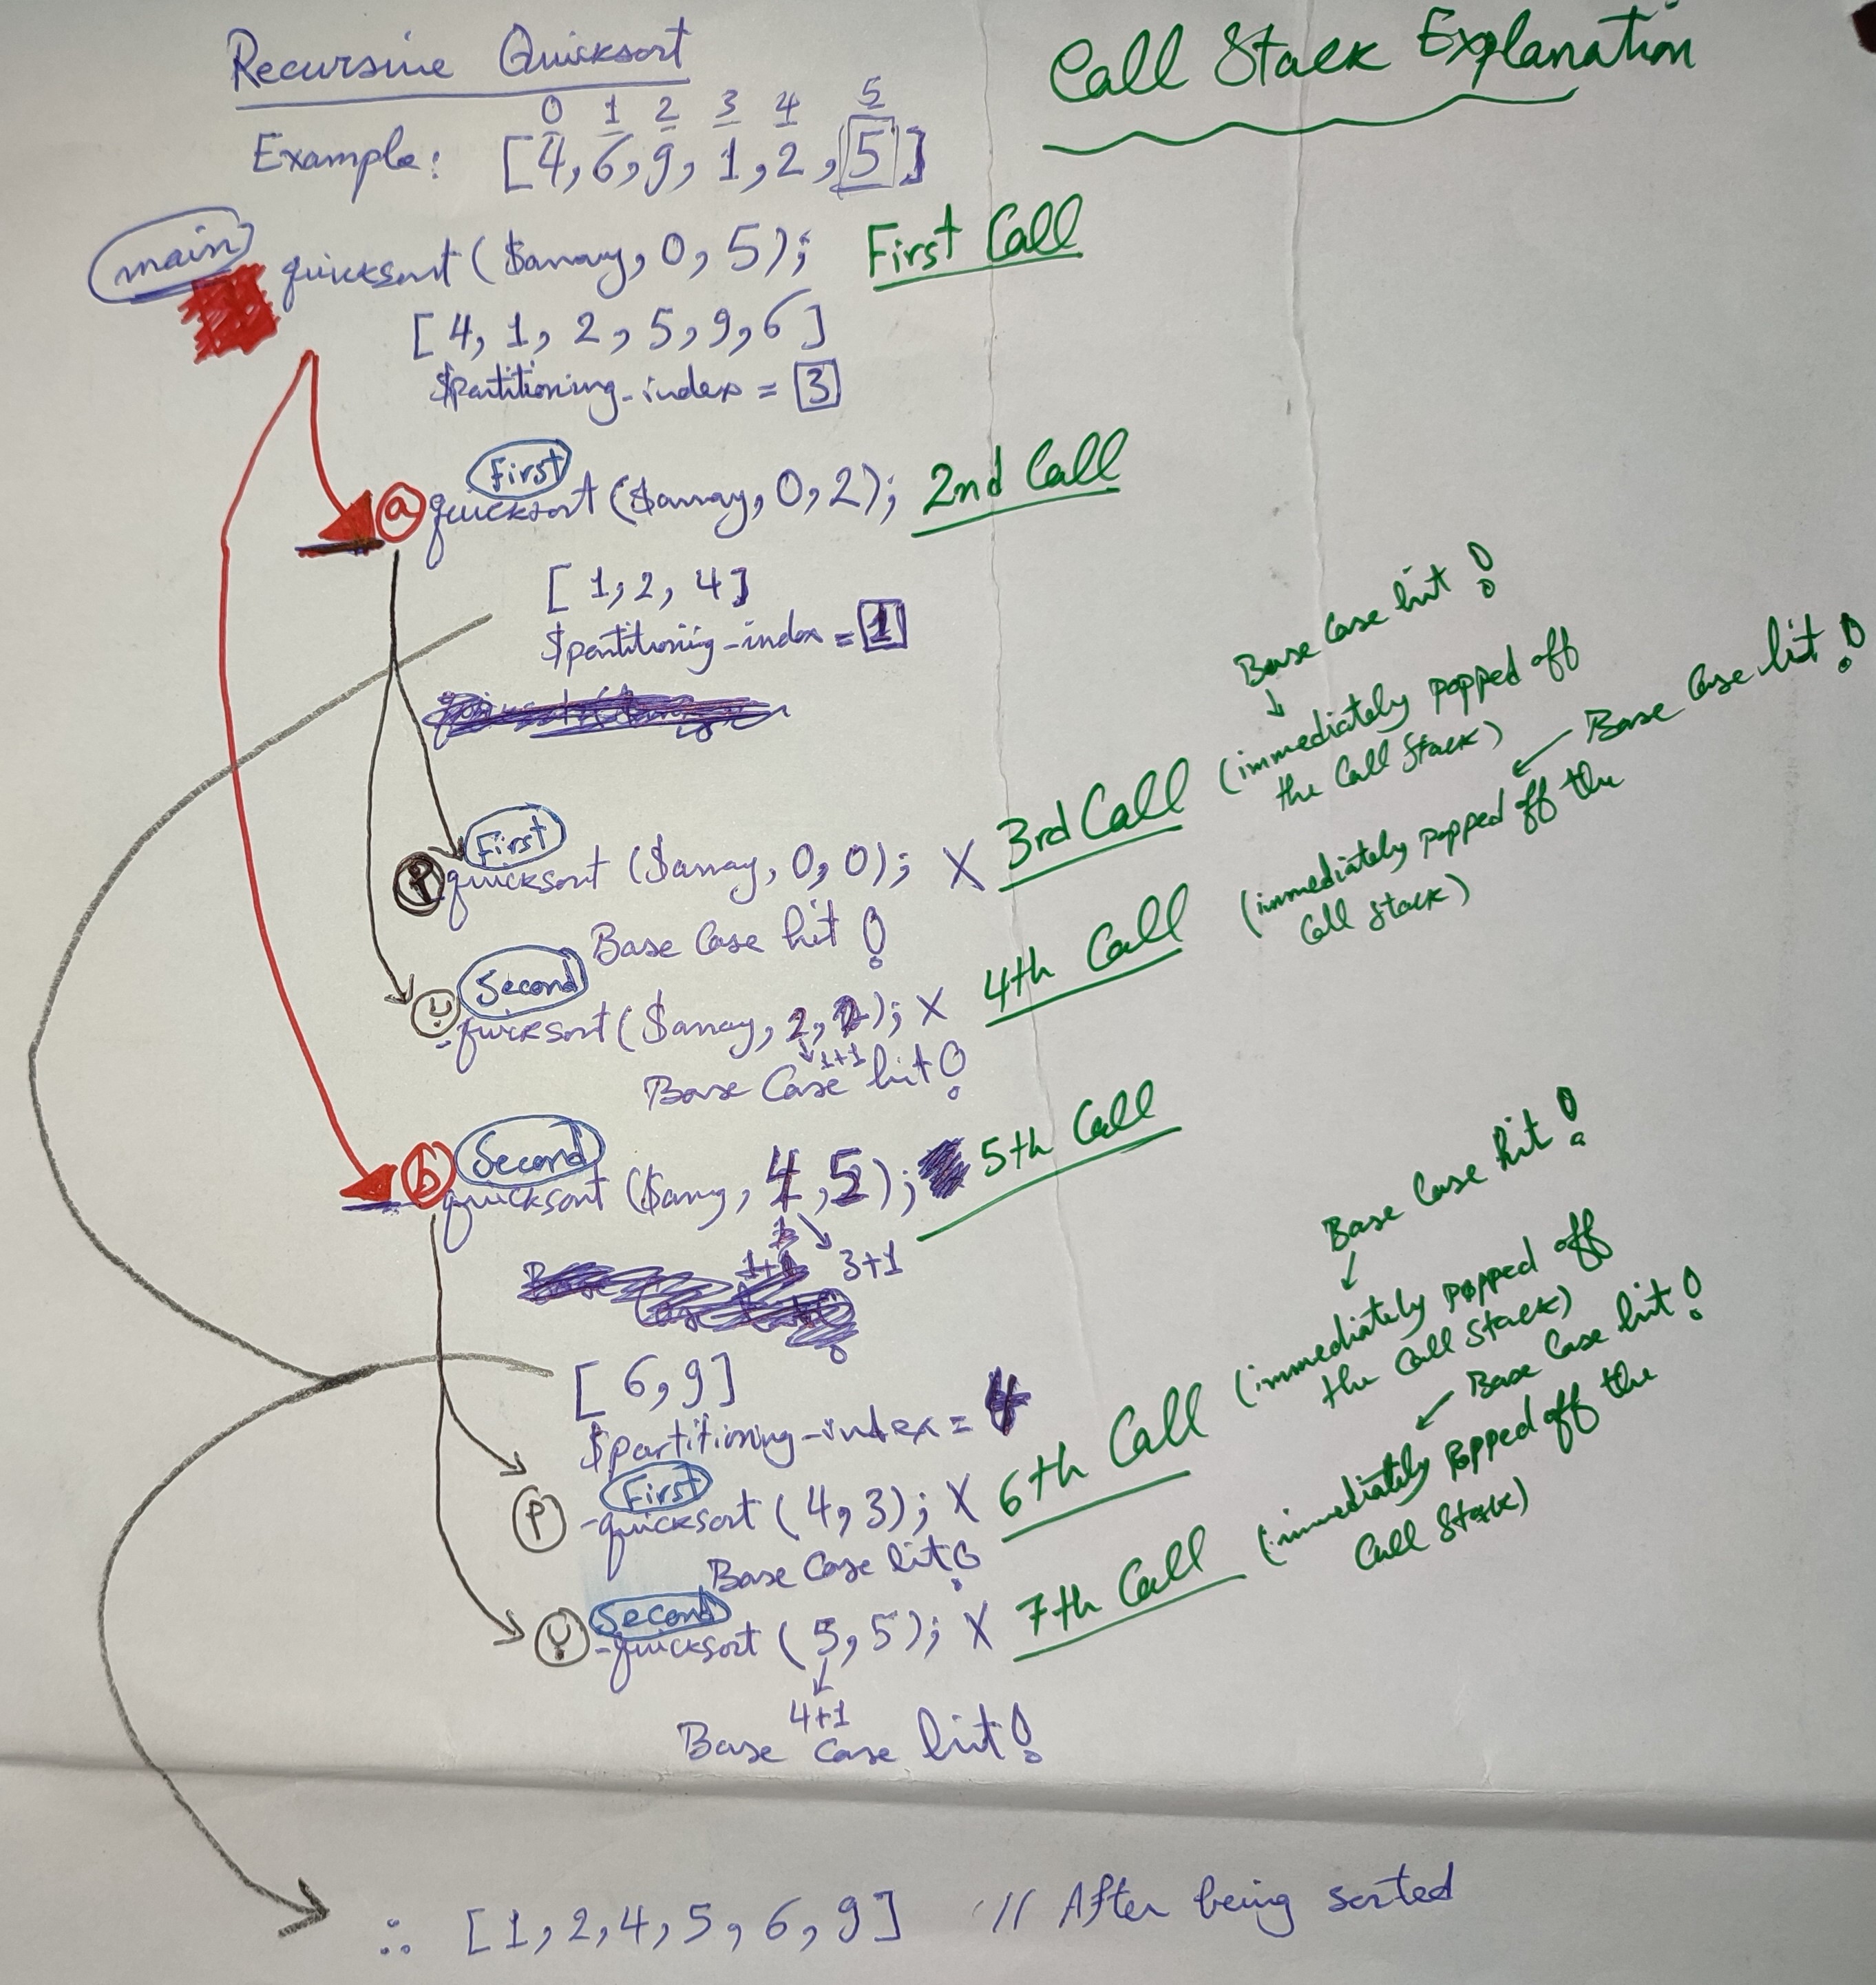 Recursive Quicksort
Call Stack Explanation
0 1 2 3 4 5
Example: [4,6,9,1,2,5]
main quicksort($array, 0, 5); First Call
[4, 1, 2, 5, 9, 6]
$partitioning_index = 3
First
a quicksort($array, 0, 2); 2nd Call
[1, 2, 4]
$partitioning_index = 1
Base Case hit!
↓
First
quicksort ($array, 0, 0); X 3rd Call (immediately popped off
the Call Stack)
Base Case hit!
← Base Case hit!
Second
quicksort($array, 2, 2); X 4th Call (immediately popped off the
Call Stack)
1+1
Base Case hit!
Second
b quicksort ($array, 4, 5); 5th Call
3+1
[6, 9]
$partitioning_index = 4
Base Case hit!
↓
First
P quicksort (4, 3); X 6th Call (immediately popped off
the Call Stack)
Base Case hit!
← Base Case hit!
Second
quicksort (5, 5); X 7th Call (immediately popped off the
Call Stack)
4+1
Base Case hit!
∴ [1, 2, 4, 5, 6, 9] // After being sorted